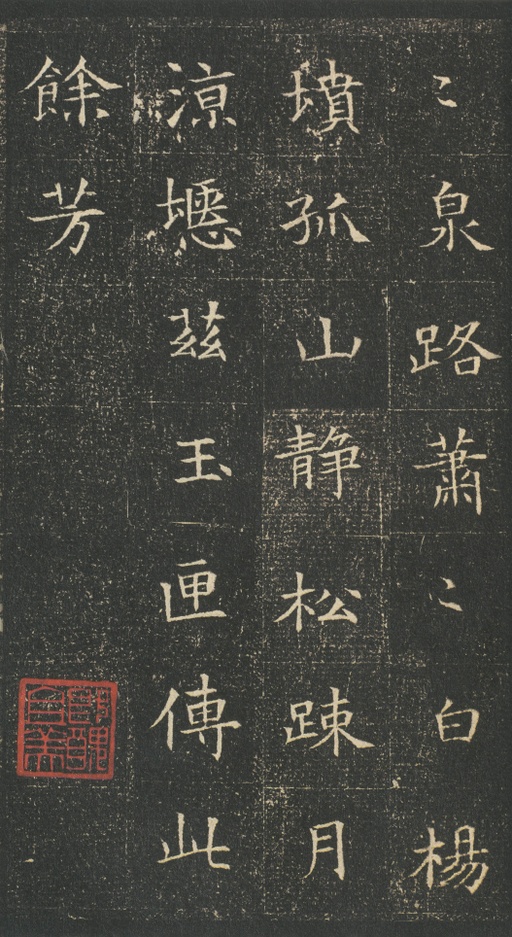 〻泉路蕭〻白楊
墳孤山静松踈月
涼瘞茲玉匣傳此
餘芳